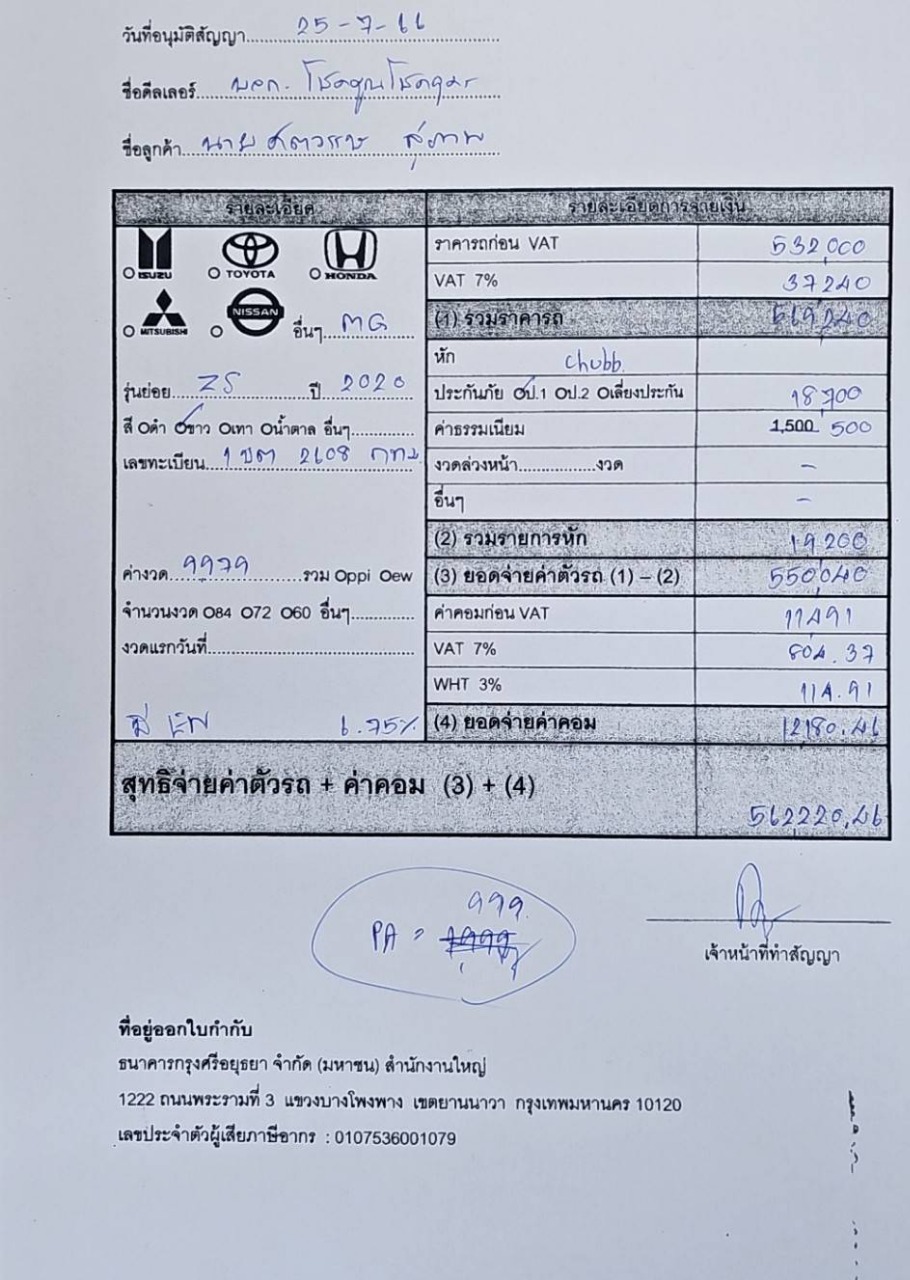 วันที่อนุมัติสัญญา 25-7-66
ชื่อดีลเลอร์ บจก. โชคคูณโชค
ชื่อลูกค้า นาย ศตวรรษ สุภาพ
รายละเอียด
รายละเอียดการจ่ายเงิน
ISUZU TOYOTA HONDA
MITSUBISHI NISSAN อื่นๆ MG
รุ่นย่อย ZS ปี 2020
สี Oดำ Oขาว Oเทา Oน้ำตาล อื่นๆ
เลขทะเบียน 1 ขต 2608 กทม
ค่างวด 9979 รวม Oppi Oew
จำนวนงวด O84 O72 O60 อื่นๆ
งวดแรกวันที่
6.75%
ราคารถก่อน VAT 532,000
VAT 7% 37240
(1) รวมราคารถ 569,240
หัก Chubb.
ประกันภัย Oป.1 Oป.2 Oเลี่ยงประกัน 18700
ค่าธรรมเนียม 1,500 500
งวดล่วงหน้า งวด -
อื่นๆ -
(2) รวมรายการหัก 19,200
(3) ยอดจ่ายค่าตัวรถ (1) – (2) 550,040
ค่าคอมก่อน VAT 11491
VAT 7% 804.37
WHT 3% 114.91
(4) ยอดจ่ายค่าคอม 12180.46
สุทธิจ่ายค่าตัวรถ + ค่าคอม (3) + (4) 562220.46
999.
PA = 1,999
เจ้าหน้าที่ทำสัญญา
ที่อยู่ออกใบกำกับ
ธนาคารกรุงศรีอยุธยา จำกัด (มหาชน) สำนักงานใหญ่
1222 ถนนพระรามที่ 3 แขวงบางโพงพาง เขตยานนาวา กรุงเทพมหานคร 10120
เลขประจำตัวผู้เสียภาษีอากร : 0107536001079